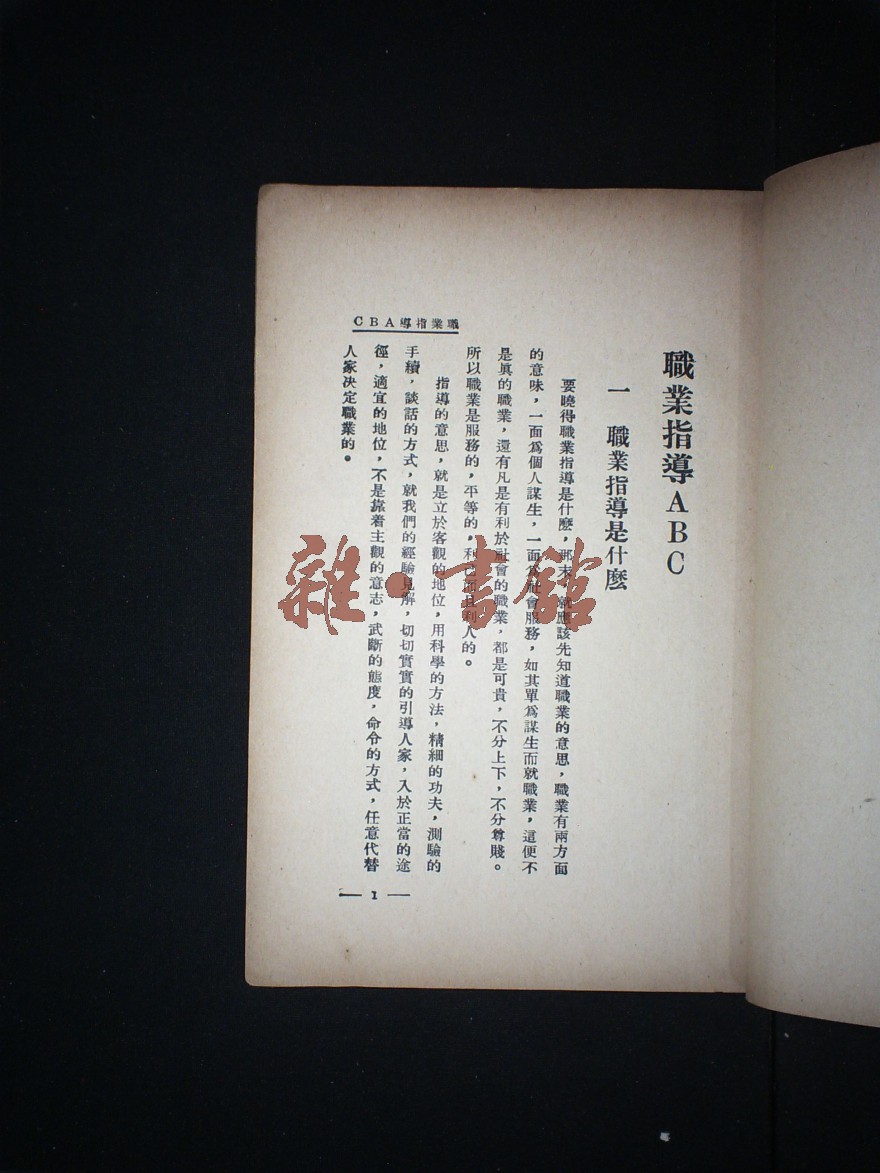 職業指導ABC
一 職業指導是什麼
要曉得職業指導是什麼，那末，就應該先知道職業的意思，職業有兩方面
的意味，一面爲個人謀生，一面爲社會服務，如其單爲謀生而就職業，這便不
是眞的職業，還有凡是有利於社會的職業，都是可貴，不分上下，不分尊賤。
所以職業是服務的，平等的，利己而且利人的。
指導的意思，就是立於客觀的地位，用科學的方法，精細的功夫，測驗的
手續，談話的方式，就我們的經驗見解，切切實實的引導人家，入於正當的途
徑，適宜的地位，不是靠着主觀的意志，武斷的態度，命令的方式，任意代替
人家決定職業的。
CBA導指業職
— 1 —
雜·書館